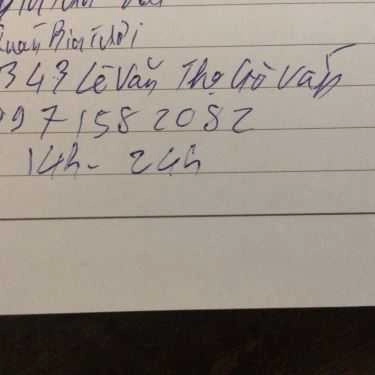 Quán Bia Tươi
343 Lê Văn Thọ Gò Vấp
097 158 2082
14h - 24h